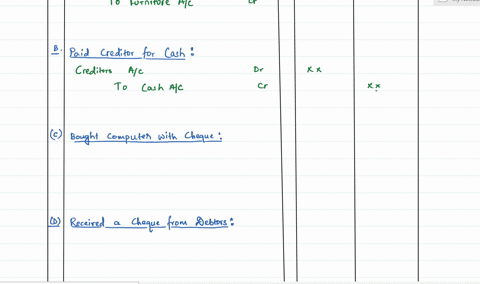 To Furniture A/c Cr
B. Paid Creditor for Cash :
Creditors A/c Dr x x
To Cash A/c Cr x x
(C) Bought Computer with Cheque :
(D) Received a Cheque from Debtors :